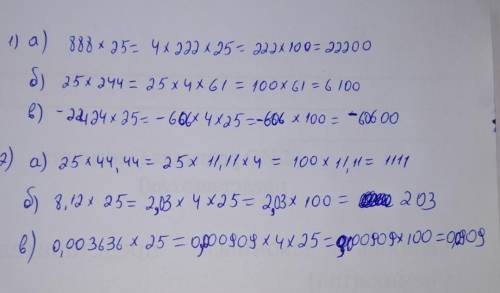 1) а) 888 × 25 = 4 × 222 × 25 = 222 × 100 = 22200
б) 25 × 244 = 25 × 4 × 61 = 100 × 61 = 6100
в) -2424 × 25 = -606 × 4 × 25 = -606 × 100 = -60600
2) а) 25 × 44,44 = 25 × 11,11 × 4 = 100 × 11,11 = 1111
б) 8,12 × 25 = 2,03 × 4 × 25 = 2,03 × 100 = 203
в) 0,003636 × 25 = 0,000909 × 4 × 25 = 0,000909 × 100 = 0,0909